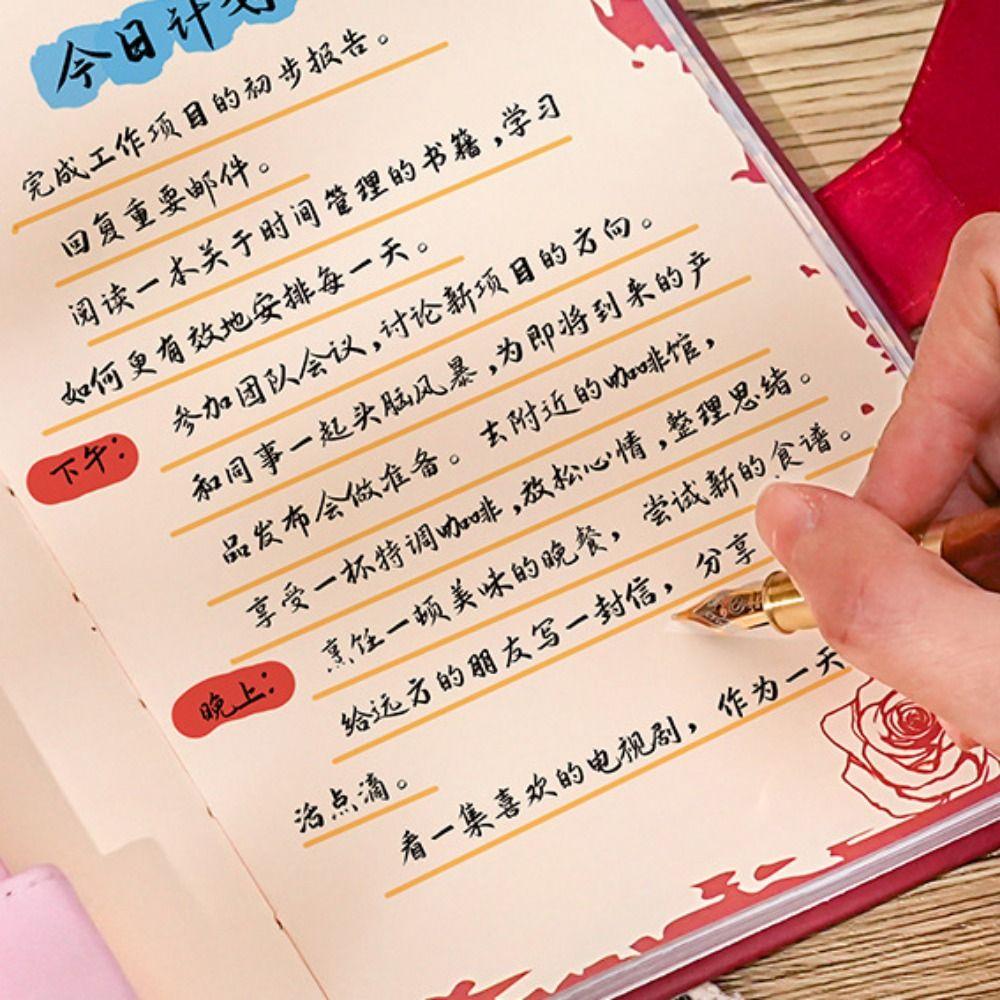 今日计划
完成工作项目的初步报告。
回复重要邮件。
阅读一本关于时间管理的书籍,学习
如何更有效地安排每一天。
参加团队会议,讨论新项目的方向。
下午:
和同事一起头脑风暴,为即将到来的产
品发布会做准备。去附近的咖啡馆,
享受一杯特调咖啡,放松心情,整理思绪。
烹饪一顿美味的晚餐,尝试新的食谱。
晚上:
给远方的朋友写一封信,分享
活点滴。
看一集喜欢的电视剧,作为一天